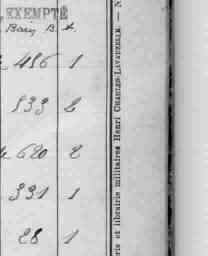 EXEMPTÉ
Bain B. A.
486 1
833 2
620 2
331 1
28 1
rie et librairie militaires Henri CHARLES-LAVAUZELLE. —